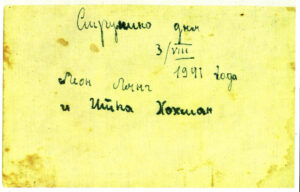 Струнино дня
3/VIII
1941 года
Леон Лянг
и Итка Хохман